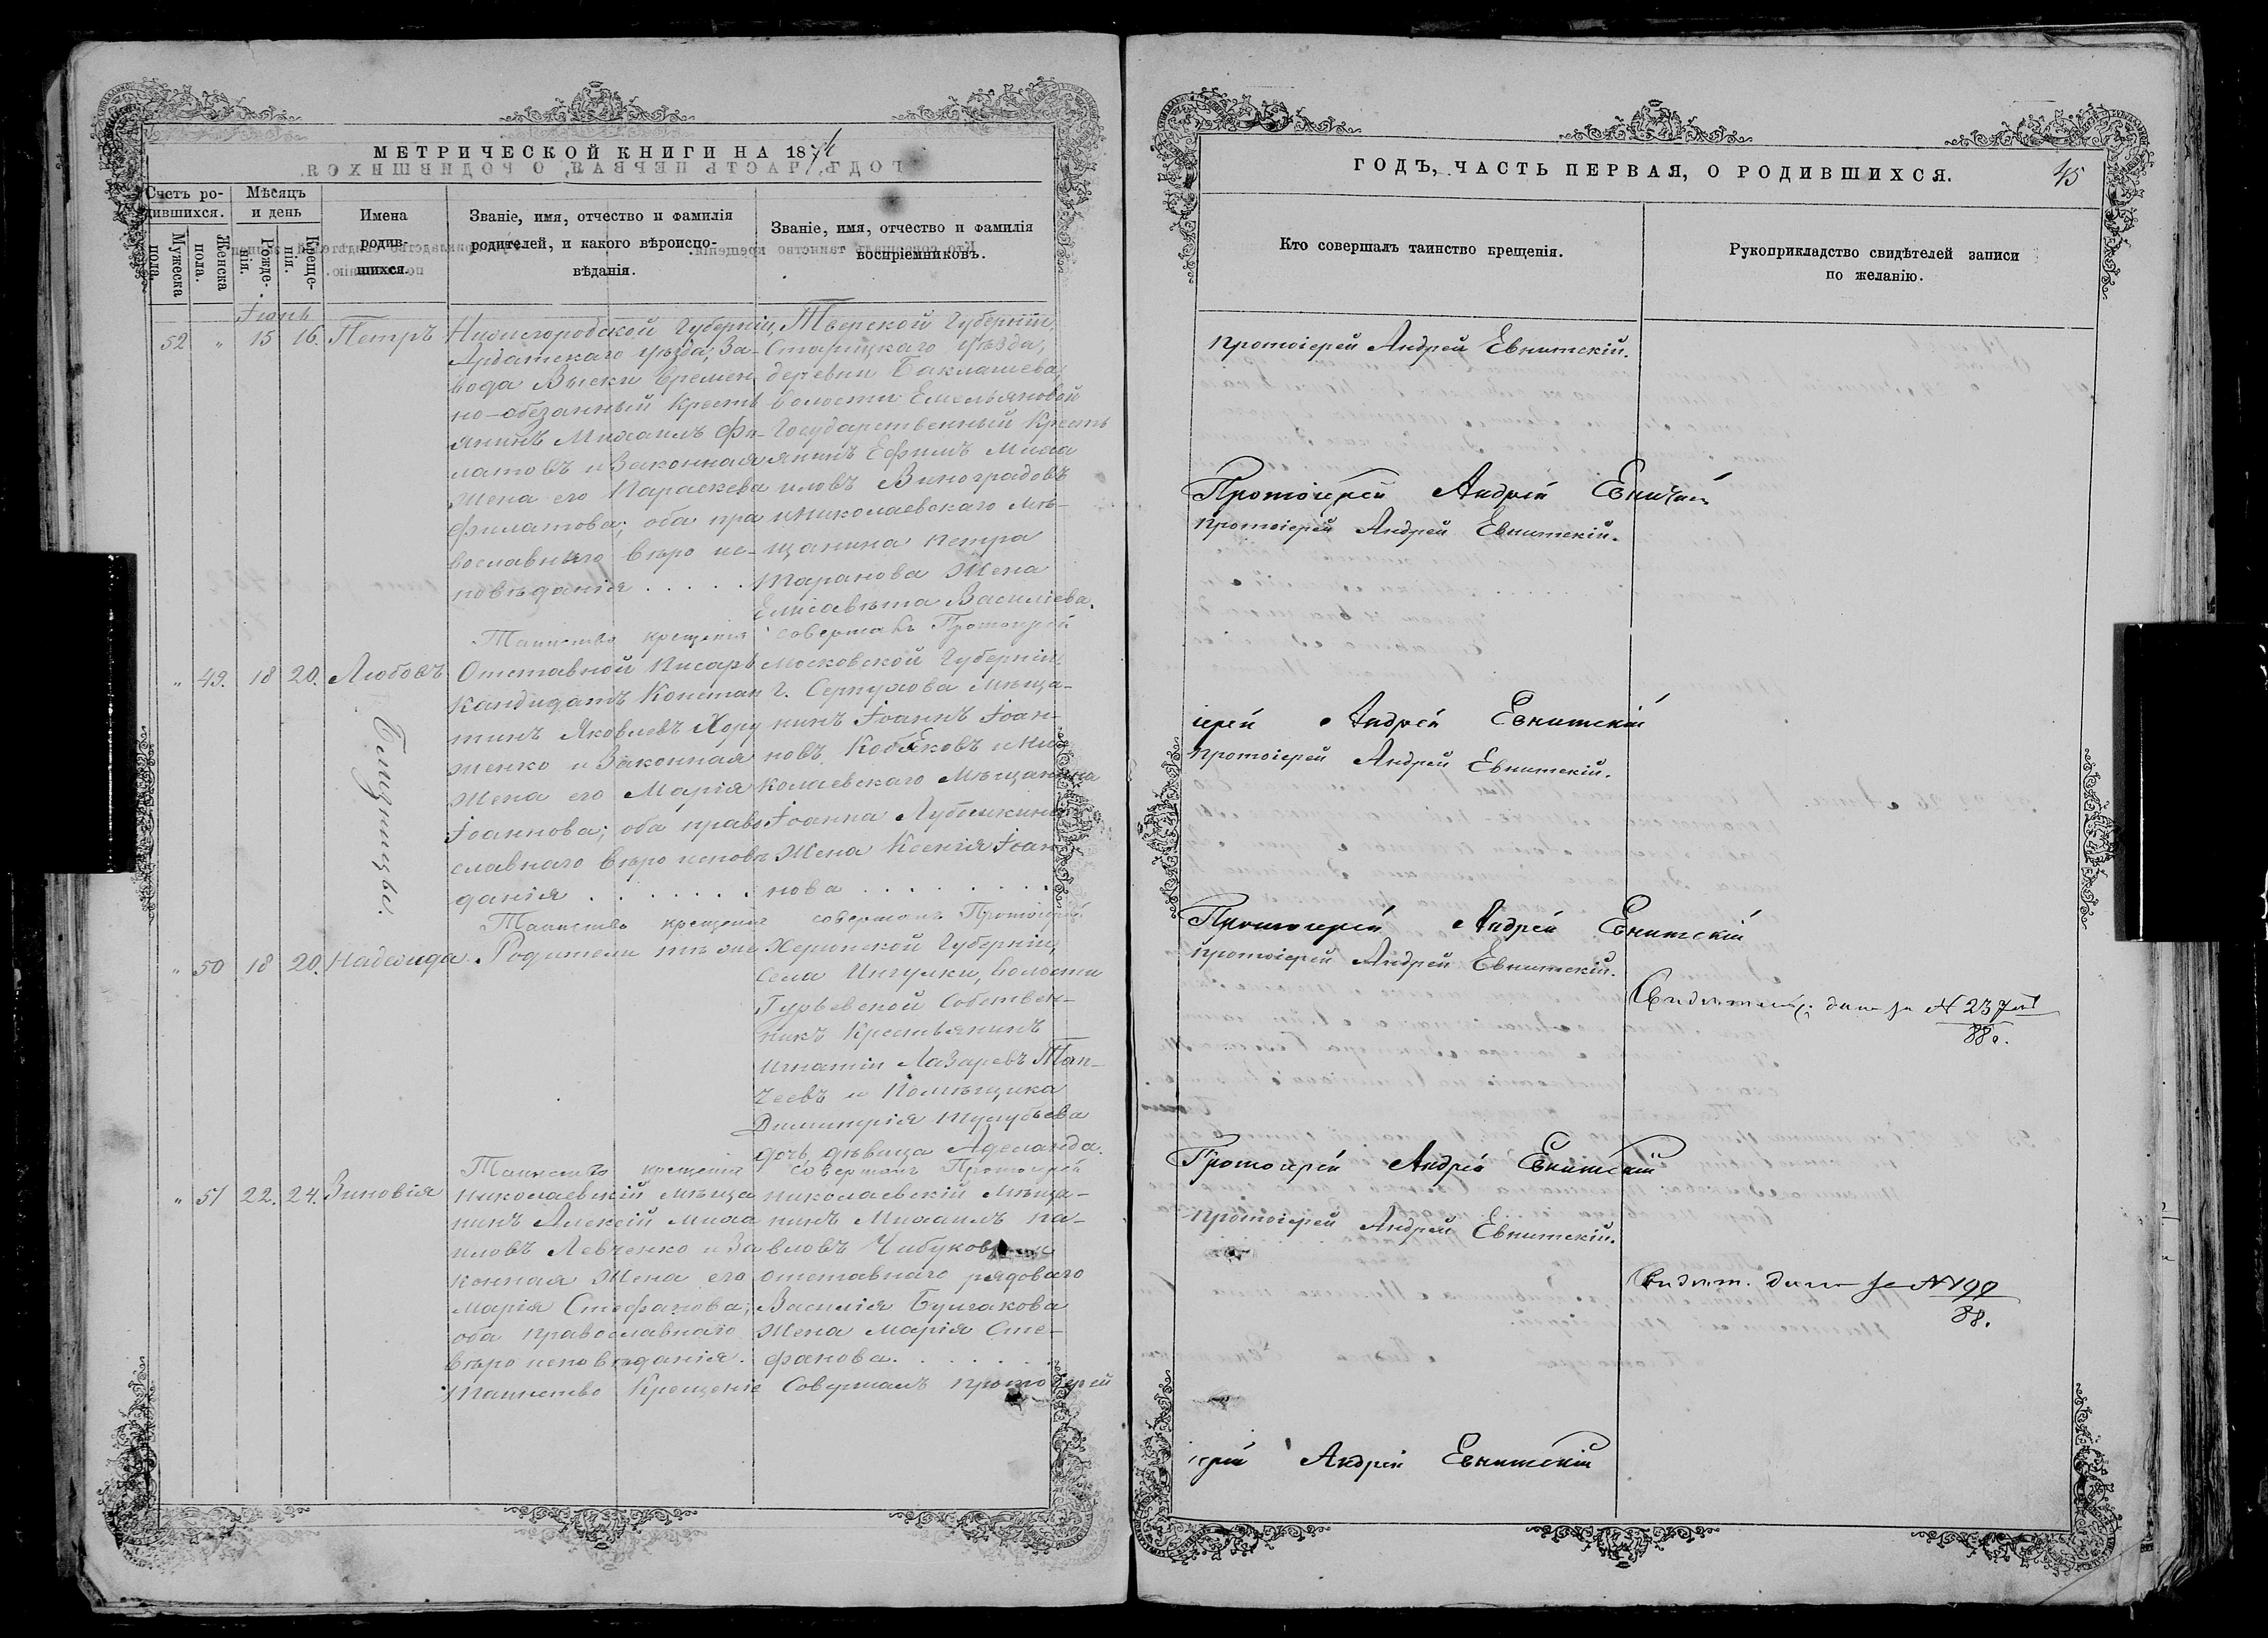 МЕТРИЧЕСКОЙ КНИГИ НА 1874
Счетъ ро-
дившихся.
Мужеска пола.
Женска пола.
Мѣсяцъ
и день
Рожде-
нія.
Креще-
нія.
Имена
родив-
шихся.
Званіе, имя, отчество и фамилія
родителей, и какого вѣроиспо-
вѣданія.
Званіе, имя, отчество и фамилія
воспріемниковъ.
52 " 15 16. Петръ
Нижегородской Губерніи,
Ардатскаго уѣзда, За-
вода Выски Времен
но-обезанный Кресть
янинъ Михаилъ Фи-
латовъ и Законная
Жена его Параскева
Филатова; оба пра
вославнаго вѣро ис-
повѣданія . . . . .
Тверской Губерніи,
Старицкаго уѣзда,
деревни Баклашева,
волости Емельяновой
Государственный Кресть
янинъ Ефимъ Миха
иловъ Виноградовъ
и Николаевскаго Мѣ-
щанина Петра
Таранова Жена
Елисавета Василіева.
Таинство крещенія совершалъ Протоіерей
" 49. 18 20. Любовъ
Близницы.
Отставной Писарь
Кандидатъ Констан
тинъ Яковлевъ Хору
женко и Законная
Жена его Марія
Іоаннова; оба право
славнаго вѣро исповѣ
данія . . . . . . .
Московской Губерніи,
г. Серпухова Мѣща-
нинъ Іоаннъ Іоан-
новъ Кобяковъ и Ни
колаевскаго Мѣщанина
Іоанна Лубяшкина
Жена Ксенія Іоан
нова . . . . . . . . .
Таинство крещенія совершалъ Протоіерей
" 50 18 20. Надежда
Родители тѣ же
Херсонской Губерніи,
Села Ингулки, волости
Гурьевской Собствен-
никъ Крестьянинъ
Игнатій Лазаревъ
и Помѣщика
Димитрія
дочь дѣвица Аделаида.
Таинство крещенія совершалъ Протоіерей
" 51 22. 24. Зиновія
Николаевскій мѣща
нинъ Алексій Миха
иловъ Левченко и За
конная Жена его
Марія Стефанова;
оба православнаго
вѣро исповѣданія.
Николаевскій Мѣща-
нинъ Михаилъ Па-
вловъ Чибуковъ и
отставнаго рядоваго
Василія Булгакова
Жена Марія Сте-
фанова. . . . . .
Таинство Крещеніе Совершалъ протоіерей
ГОДЪ, ЧАСТЬ ПЕРВАЯ, О РОДИВШИХСЯ.
45
Кто совершалъ таинство крещенія.
Рукоприкладство свидѣтелей записи
по желанію.
Протоіерей Андрей Евнитскій.
Протоіерей Андрей
Протоіерей Андрей Евнитскій.
іерей Андрей Евнитскій
Протоіерей Андрей Евнитскій.
Протоіерей Андрей Евнитскій
Протоіерей Андрей Евнитскій.
дано за № 237
88 г.
Протоіерей Андрей Евнитскій
Протоіерей Андрей Евнитскій.
Свидѣт. дано за № 199
88.
іерей Андрей Евнитскій